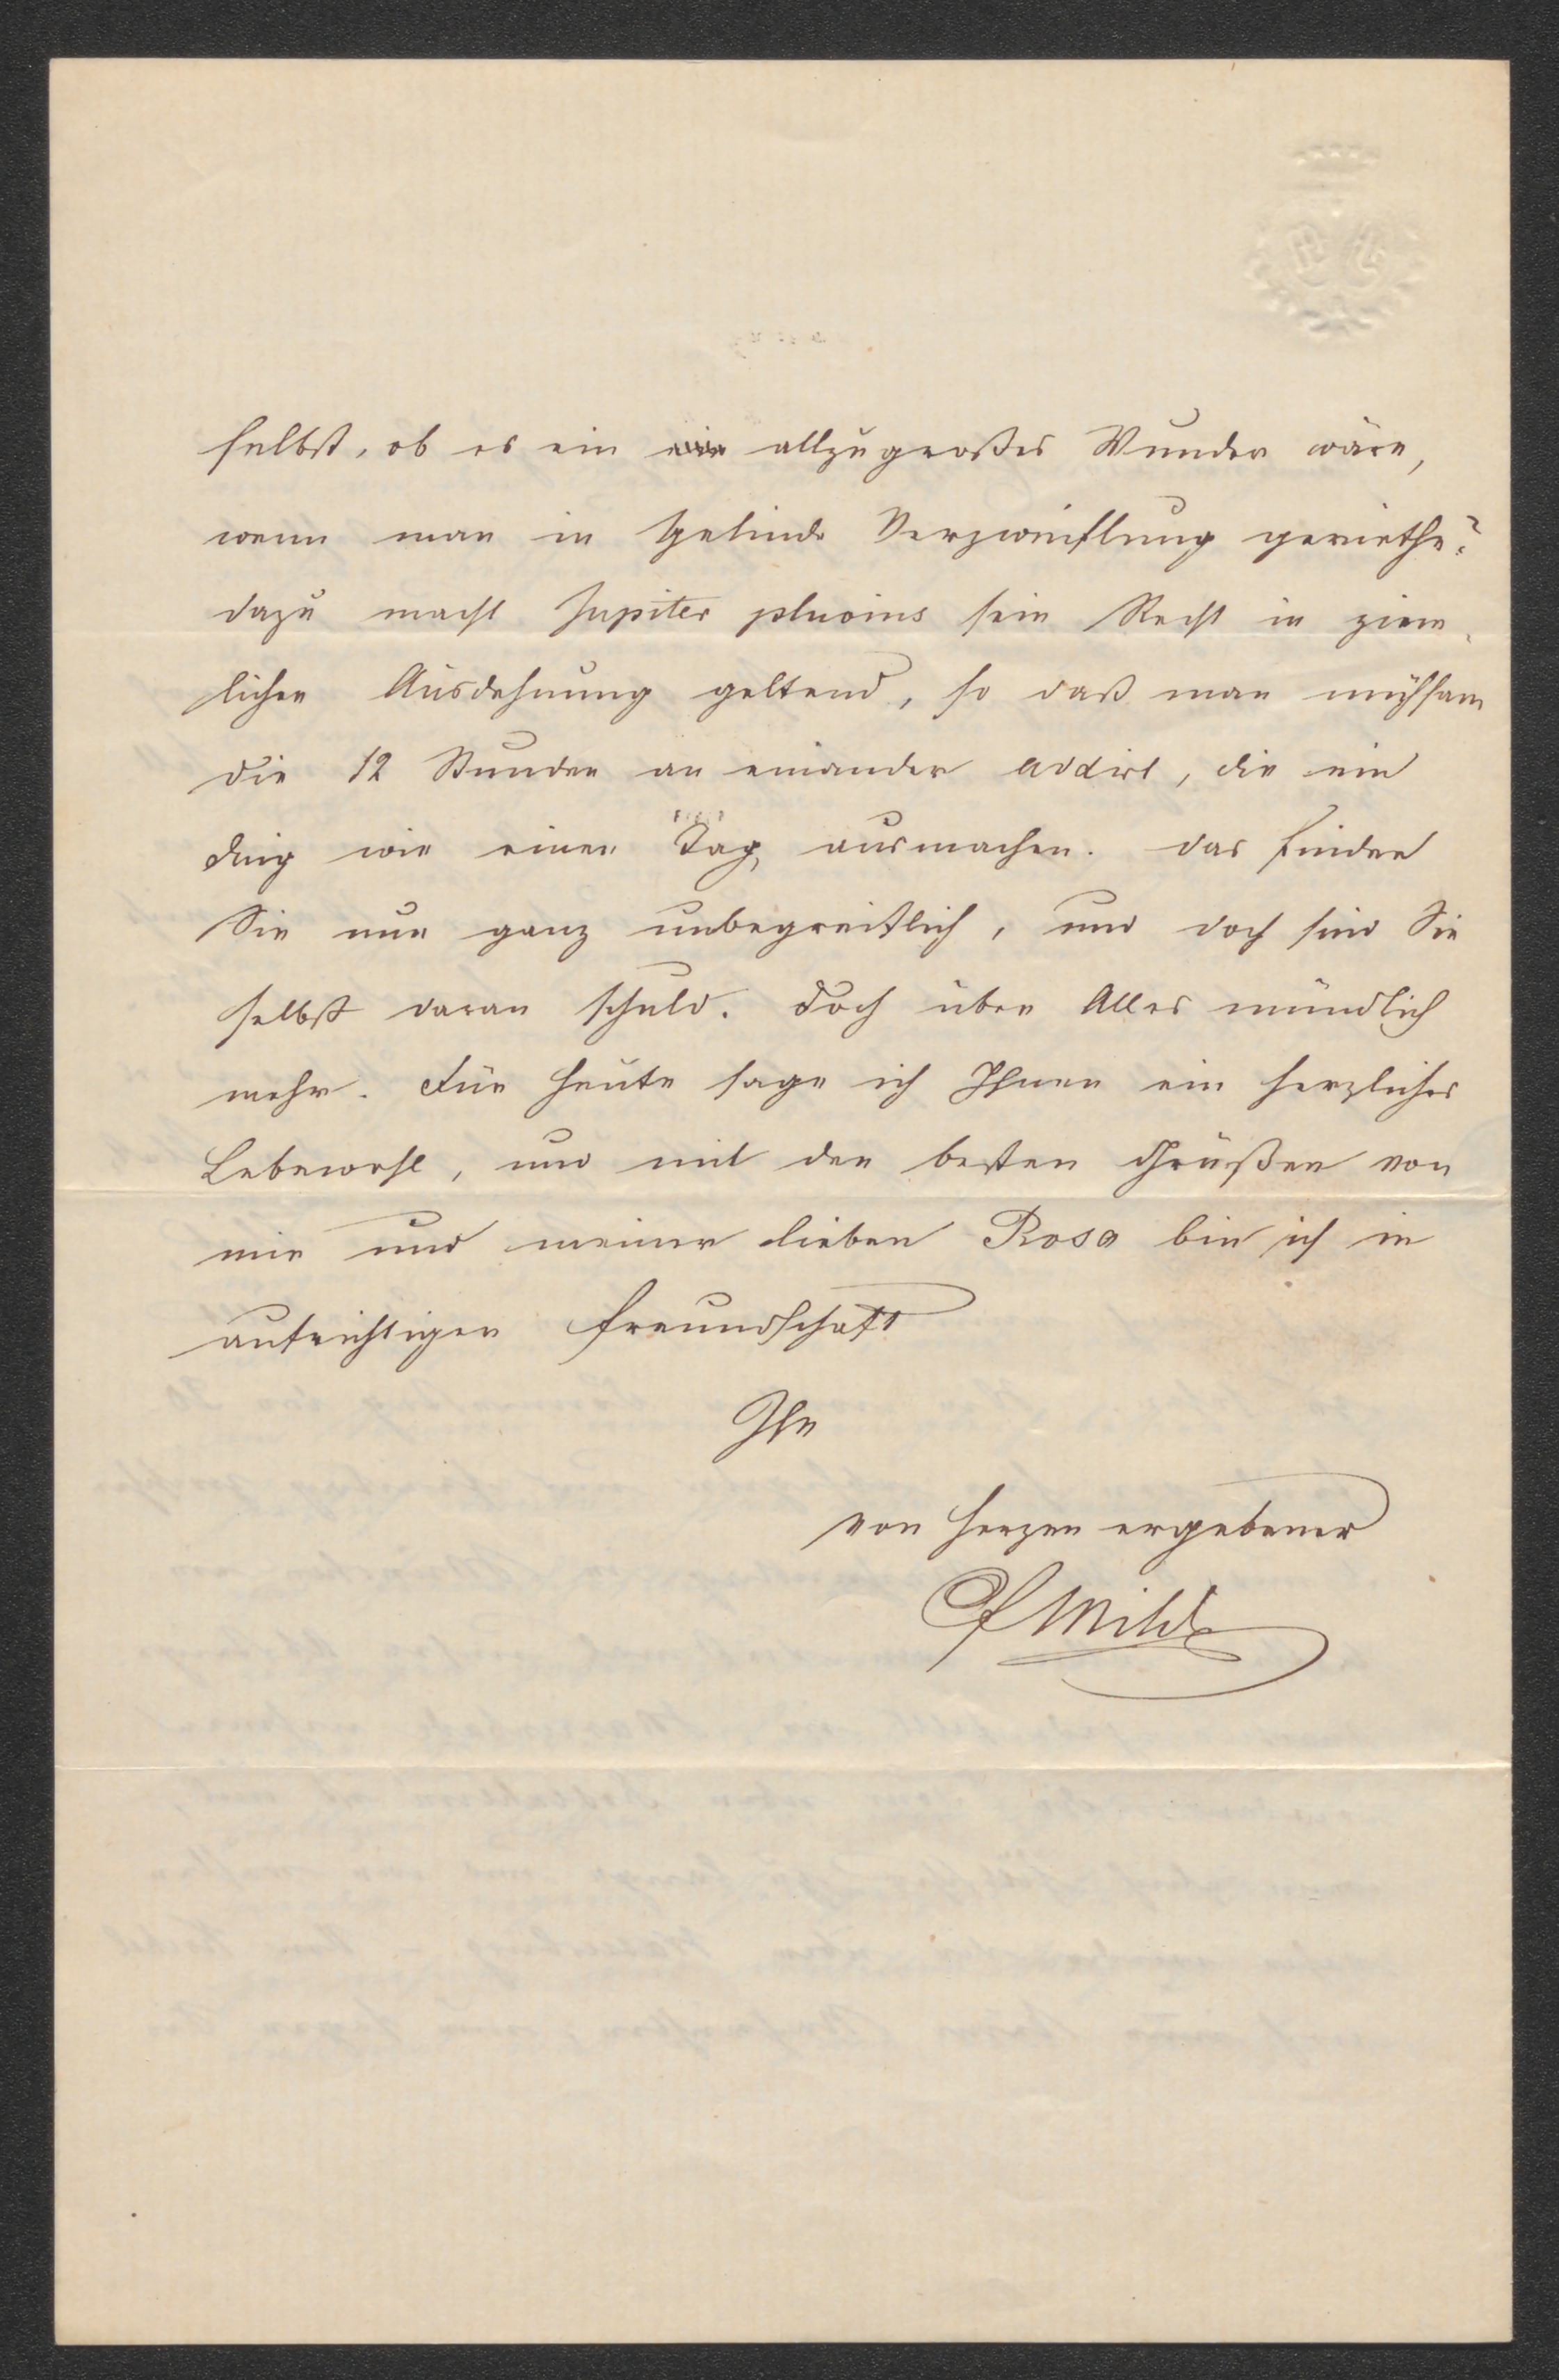 selbst, ob es ein allzugroßes Wunder wäre,
wenn man in gelinde Verzweiflung geriethe?
dazu macht Jupiter pluvius sein Recht in ziem-
licher Ausdehnung geltend, so daß man mühsam
die 12 Stunden an einander addirt, die ein
Ding wie einen Tag, ausmachen. Das finden
Sie nun ganz unbegreiflich, und doch sind Sie
selbst daran schuld. Doch über Alles mündlich
mehr. Für heute sage ich Ihnen ein herzliches
Lebewohl, und mit den besten Grüßen von
mir und meiner lieben Rosa bin ich in
aufrichtiger Freundschaft
Ihr
von Herzen ergebener
Milde